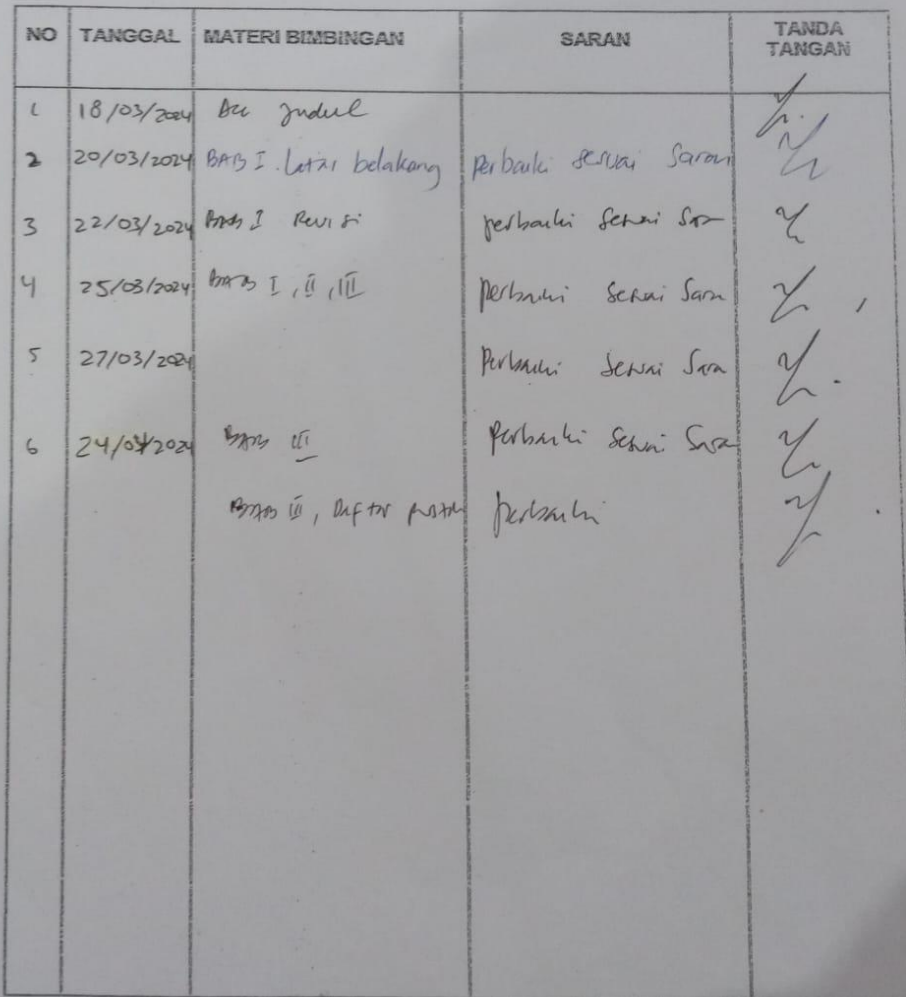 NO TANGGAL MATERI BIMBINGAN SARAN TANDA TANGAN
1 18/03/2024 Acc Judul
2 20/03/2024 BAB I. Latar belakang Perbaiki sesuai Saran
3 22/03/2024 BAB I Revisi perbaiki sesuai Saran
4 25/03/2024 BAB I, II, III Perbaiki sesuai Saran
5 27/03/2024 Perbaiki sesuai Saran
6 24/04/2024 BAB III Perbaiki sesuai Saran
BAB III, Daftar pustaka perbaiki